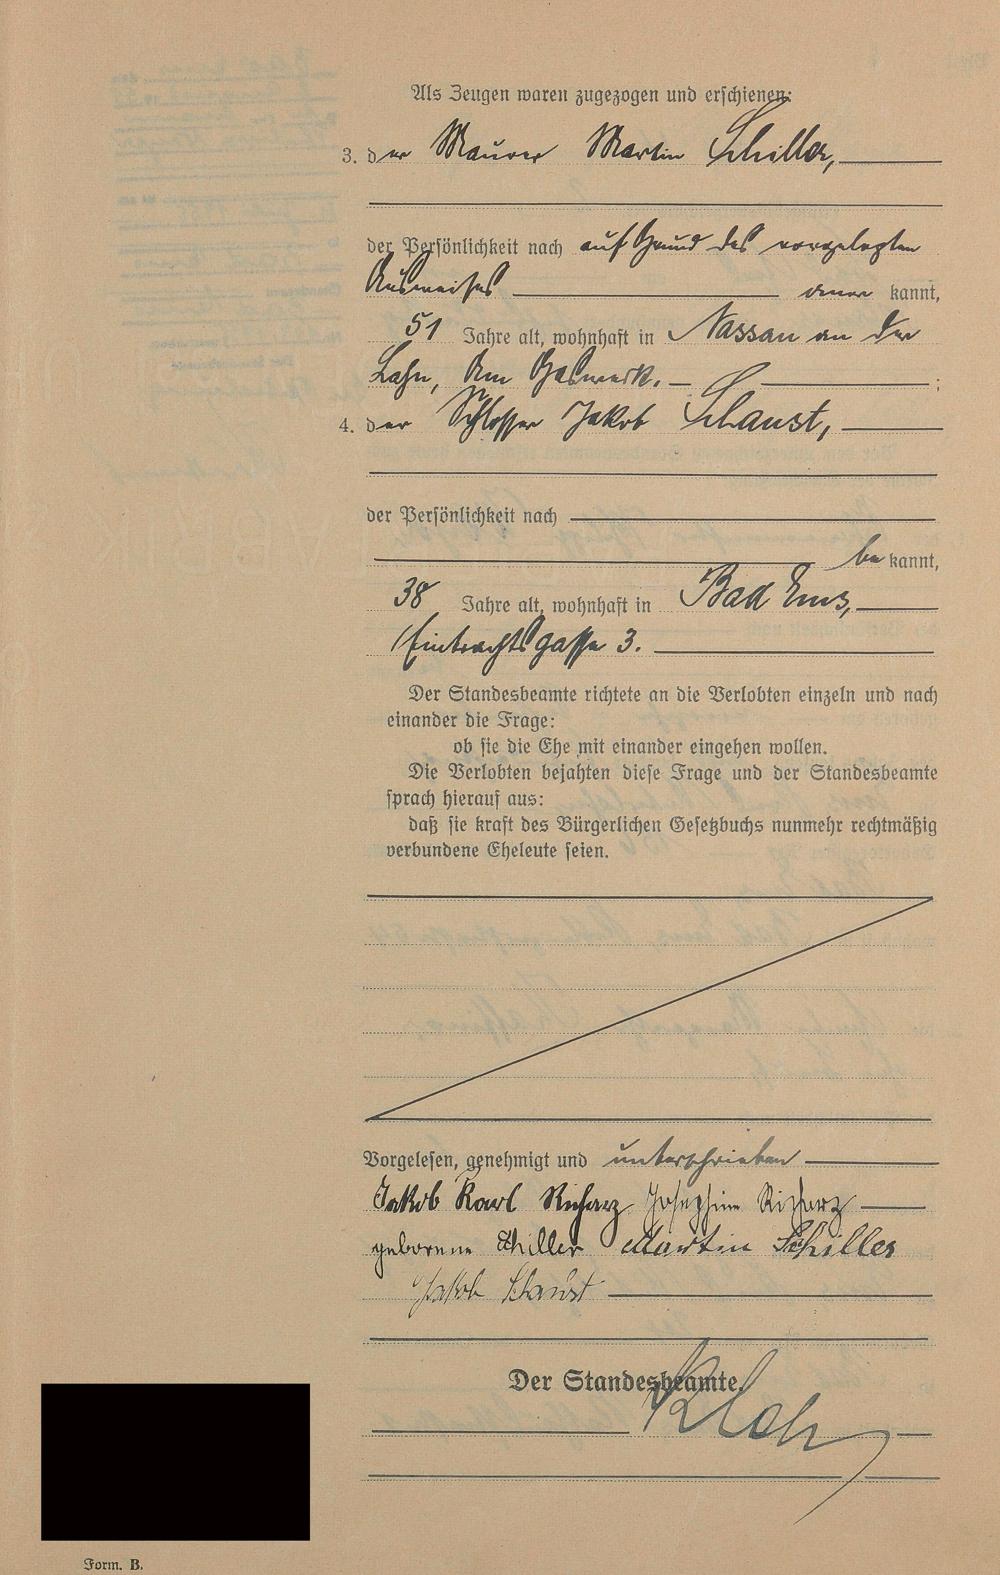 Als Zeugen waren zugezogen und erschienen:
3. der Maurer Martin Schiller,
der Persönlichkeit nach auf Grund des vorgelegten
Ausweises anerkannt,
51 Jahre alt, wohnhaft in Nassau an der
Lahn, Am Gaswerk. ;
4. der Schlosser Jakob Schaust,
der Persönlichkeit nach
bekannt,
38 Jahre alt, wohnhaft in Bad Ems,
Eintrachtsgasse 3.
Der Standesbeamte richtete an die Verlobten einzeln und nach
einander die Frage:
ob sie die Ehe mit einander eingehen wollen.
Die Verlobten bejahten diese Frage und der Standesbeamte
sprach hierauf aus:
daß sie kraft des Bürgerlichen Gesetzbuchs nunmehr rechtmäßig
verbundene Eheleute seien.
Vorgelesen, genehmigt und unterschrieben
Jakob Karl Richarz Josephine Richarz
geborene Schiller Martin Schiller
Jakob Schaust
Der Standesbeamte.
Form. B.